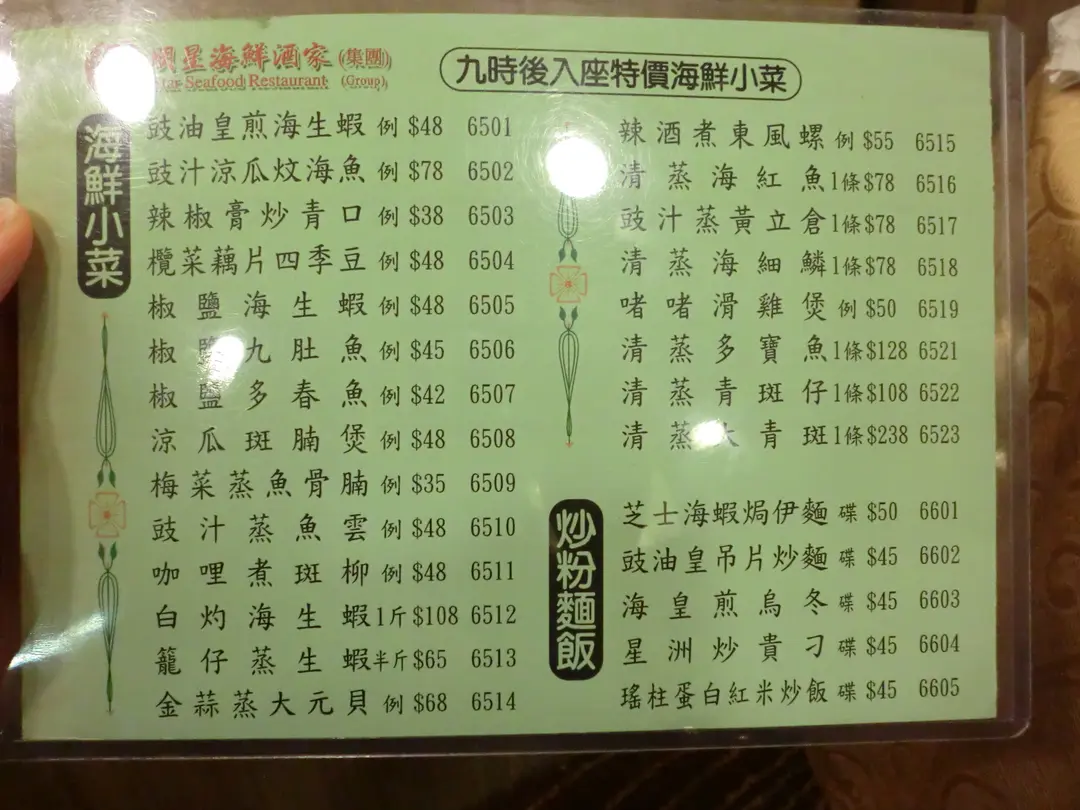 明星海鮮酒家(集團)
Star Seafood Restaurant (Group)
九時後入座特價海鮮小菜
海鮮小菜
豉油皇煎海生蝦 例 $48 6501
豉汁涼瓜炆海魚 例 $78 6502
辣椒膏炒青口 例 $38 6503
欖菜藕片四季豆 例 $48 6504
椒鹽海生蝦 例 $48 6505
椒鹽九肚魚 例 $45 6506
椒鹽多春魚 例 $42 6507
涼瓜斑腩煲 例 $48 6508
梅菜蒸魚骨腩 例 $35 6509
豉汁蒸魚雲 例 $48 6510
咖哩煮斑柳 例 $48 6511
白灼海生蝦 1斤 $108 6512
籠仔蒸生蝦 半斤 $65 6513
金蒜蒸大元貝 例 $68 6514
辣酒煮東風螺 例 $55 6515
清蒸海紅魚 1條 $78 6516
豉汁蒸黃立倉 1條 $78 6517
清蒸海細鱗 1條 $78 6518
啫啫滑雞煲 例 $50 6519
清蒸多寶魚 1條 $128 6521
清蒸青斑仔 1條 $108 6522
清蒸大青斑 1條 $238 6523
炒粉麵飯
芝士海蝦焗伊麵 碟 $50 6601
豉油皇吊片炒麵 碟 $45 6602
海皇煎烏冬 碟 $45 6603
星洲炒貴刁 碟 $45 6604
瑤柱蛋白紅米炒飯 碟 $45 6605